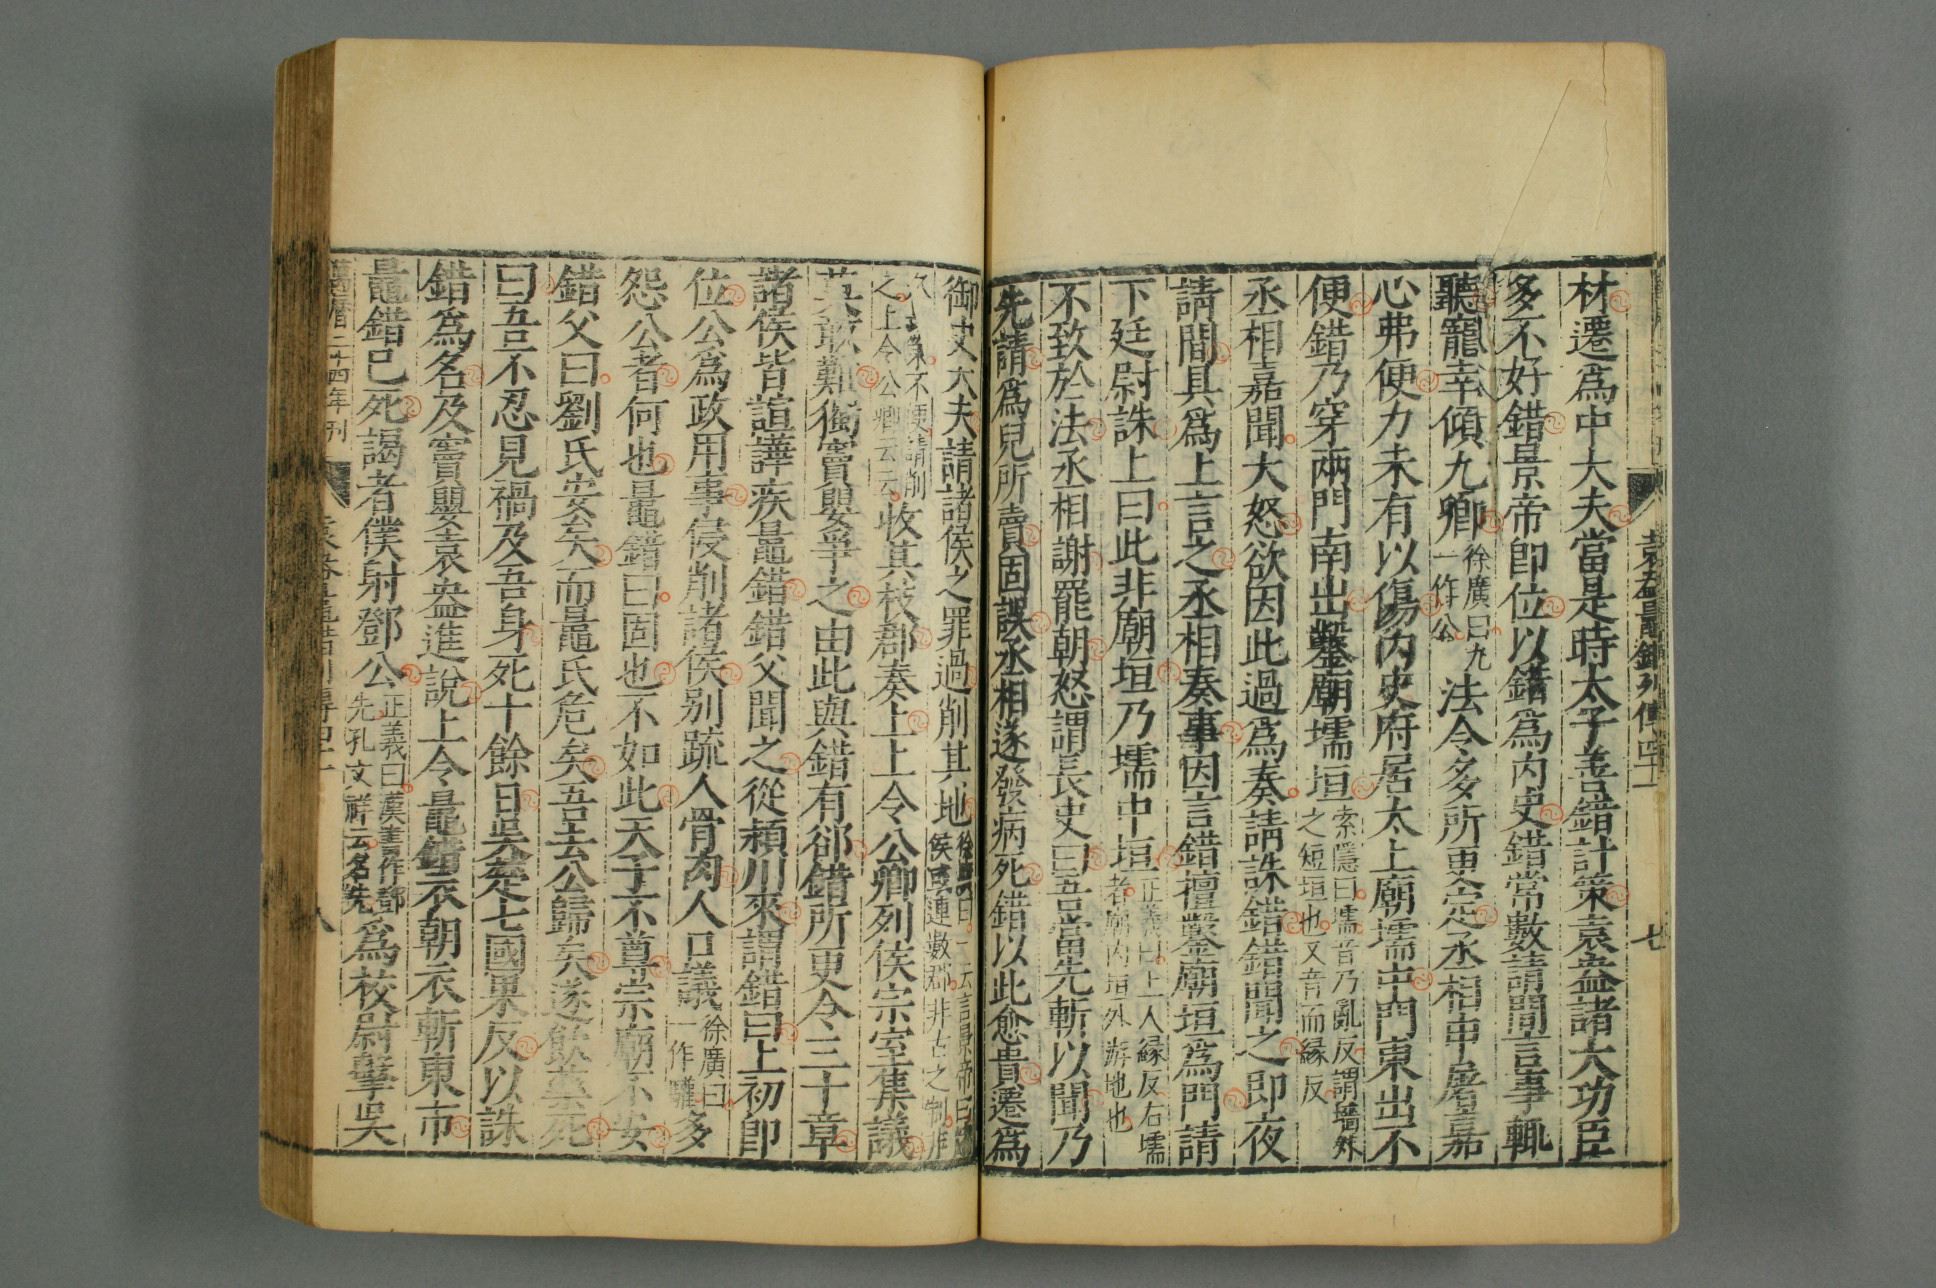 袁盎鼂錯列傳四十一
七
材遷爲中大夫當是時太子善錯計策袁盎諸大功臣
多不好錯景帝卽位以錯爲内史錯常數請間言事輒
聽寵幸傾九卿徐廣曰九一作公法令多所更定丞相申屠嘉
心弗便力未有以傷内史府居太上廟壖中門東出不
便錯乃穿兩門南出鑿廟壖垣索隱曰壖音乃亂反謂牆外之短垣也又音而緣反
丞相嘉聞大怒欲因此過爲奏請誅錯錯聞之卽夜
請間具爲上言之丞相奏事因言錯擅鑿廟垣爲門請
下廷尉誅上曰此非廟垣乃壖中垣正義曰上人緣反右壖者廟内垣外游地也
不致於法丞相謝罷朝怒謂長史曰吾當先斬以聞乃
先請爲兒所賣固誤丞相遂發病死錯以此愈貴遷爲
御史大夫請諸侯之罪過削其地徐廣曰一云言景帝曰諸侯或連數郡非古之制非久長策不便請削之上令公卿云云收其枝郡奏上上令公卿列侯宗室集議
莫敢難獨竇嬰爭之由此與錯有郤錯所更令三十章
諸侯皆諠譁疾鼂錯錯父聞之從潁川來謂錯曰上初卽
位公爲政用事侵削諸侯别疏人骨肉人口議徐廣曰一作讙多
怨公者何也鼂錯曰固也不如此天子不尊宗廟不安
錯父曰劉氏安矣而鼂氏危矣吾去公歸矣遂飲藥死
曰吾不忍見禍及吾身死十餘日吳楚七國果反以誅
錯爲名及竇嬰袁盎進說上令鼂錯衣朝衣斬東市
鼂錯已死謁者僕射鄧公正義曰漢書作鄧先孔文祥云名先爲校尉擊吳
萬曆二十四年刊
袁盎鼂錯列傳四十一
八